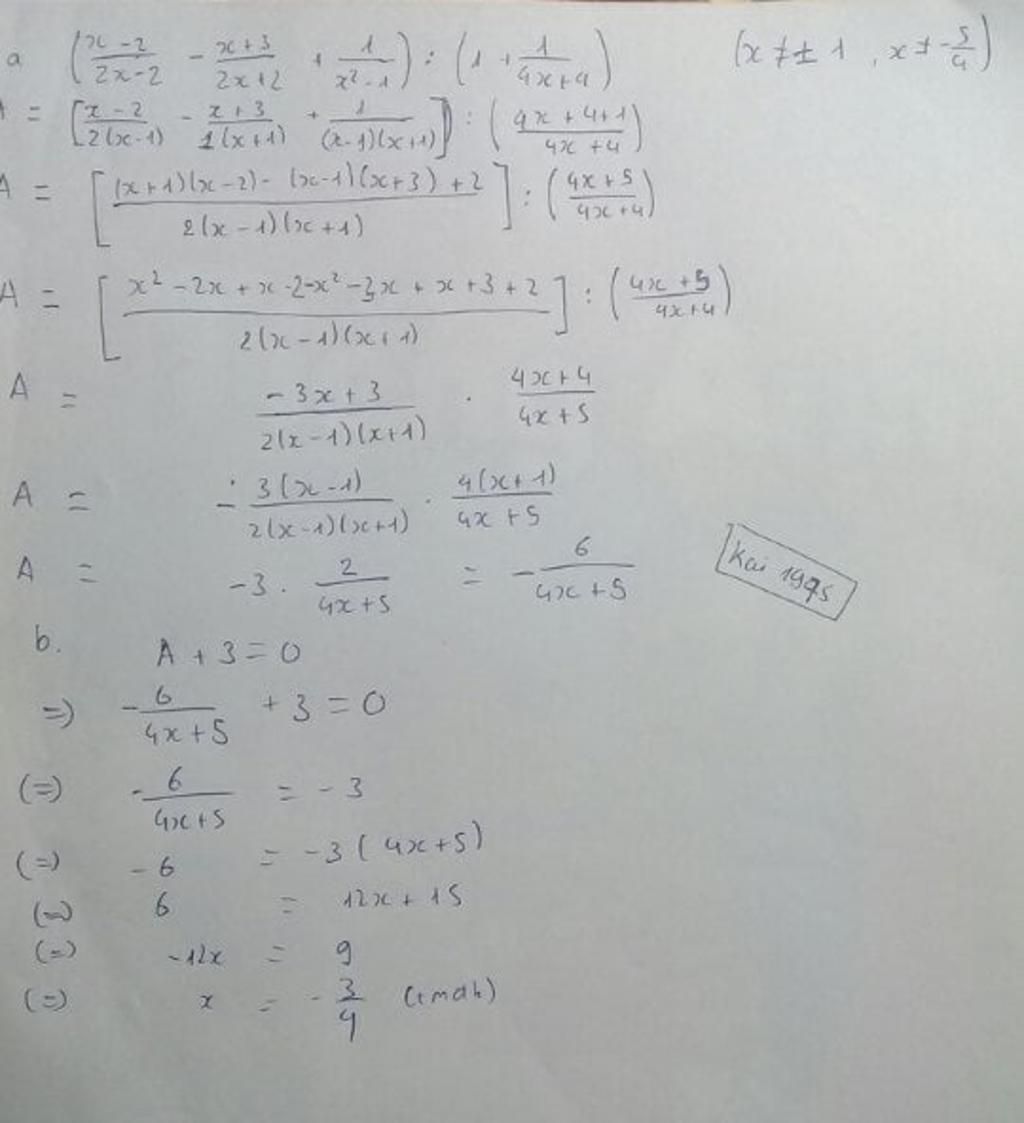 a (x-2/2x-2 - x+3/2x+2 + 1/x²-1) : (1 + 1/4x+4) (x ≠ ± 1, x ≠ -5/4)
A = [x-2/2(x-1) - x+3/2(x+1) + 1/(x-1)(x+1)] : (4x+4+1/4x+4)
A = [(x+1)(x-2) - (x-1)(x+3) + 2/2(x-1)(x+1)] : (4x+5/4x+4)
A = [x² - 2x + x - 2 - x² - 3x + x + 3 + 2/2(x-1)(x+1)] : (4x+5/4x+4)
A = -3x+3/2(x-1)(x+1) . 4x+4/4x+5
A = - 3(x-1)/2(x-1)(x+1) . 4(x+1)/4x+5
A = -3 . 2/4x+5 = - 6/4x+5
Kai 1995
b. A + 3 = 0
=) - 6/4x+5 + 3 = 0
(=) - 6/4x+5 = -3
(=) -6 = -3(4x+5)
(=) 6 = 12x + 15
(=) -12x = 9
(=) x = - 3/4 (tmđk)